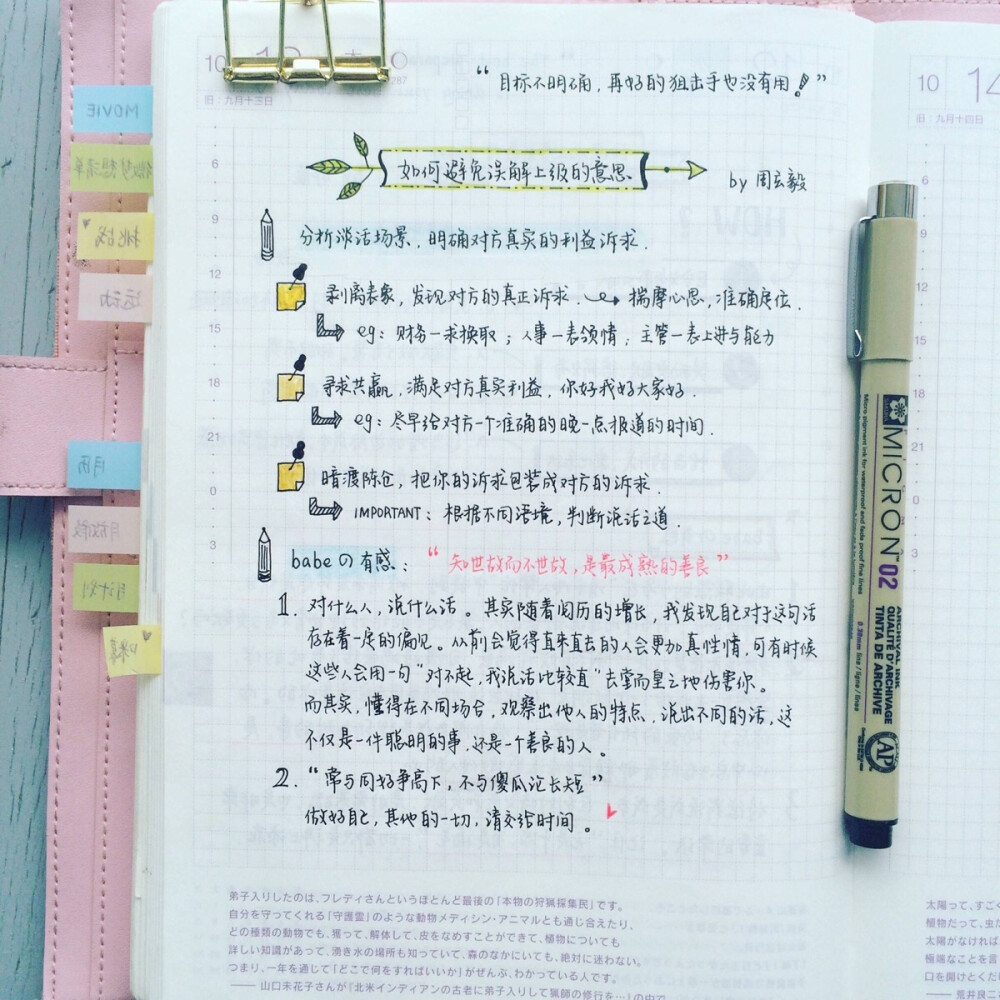 10
287
旧:九月十三日
“目标不明确,再好的狙击手也没有用!”
如何避免误解上级的意思
by 周玄毅
分析谈话场景,明确对方真实的利益诉求.
剥离表象,发现对方的真正诉求. 揣摩心思,准确定位.
eg: 财务—求换取;人事—表领情;主管—表上进与能力
寻求共赢,满足对方真实利益,你好我好大家好.
eg: 尽早给对方一个准确的晚一点报道的时间.
暗渡陈仓,把你的诉求包装成对方的诉求.
IMPORTANT: 根据不同语境,判断说话之道.
babeの有感: “知世故而不世故,是最成熟的善良”
1. 对什么人,说什么话。其实随着阅历的增长,我发现自己对于这句话
存在着一定的偏见。从前会觉得直来直去的人会更加真性情,可有时候
这些人会用一句“对不起,我说话比较直”去堂而皇之地伤害你。
而其实,懂得在不同场合,观察出他人的特点,说出不同的话,这
不仅是一件聪明的事,还是一个善良的人。
2. “常与同好争高下,不与傻瓜论长短”
做好自己,其他的一切,请交给时间。
6
9
12
15
18
21
0
3
弟子入りしたのは、フレディさんというほとんど最後の「本物の狩猟採集民」です。
自分を守ってくれる「守護霊」のような動物メディシン・アニマルとも通じ合えたり、
どの種類の動物でも、獲って、解体して、皮をなめすことができて、植物についても
詳しい知識があって、湧き水の場所も知っていて、森のなかにいても、絶対に迷わない。
つまり、一年を通じて「どこで何をすればいいか」がぜんぶ、わかっている人です。
—— 山口未花子さんが『北米インディアンの古老に弟子入りして猟師の修行を…』の中で
MOVIE
挑战
运动
月历
月计划
10 14
旧:九月十四日
6
9
12
15
18
21
0
3
太陽って、すごく
植物だって、虫だ
太陽がなければ
極端なことを言
口を開けとくだけ
—— 荒井良二
MICRON 02
Micro pigment ink for waterproof and fade proof fine lines
0.30mm line / ligne / lines
ARCHIVAL INK
QUALITÉ D'ARCHIVAGE
TINTA DE ARCHIVE
AP